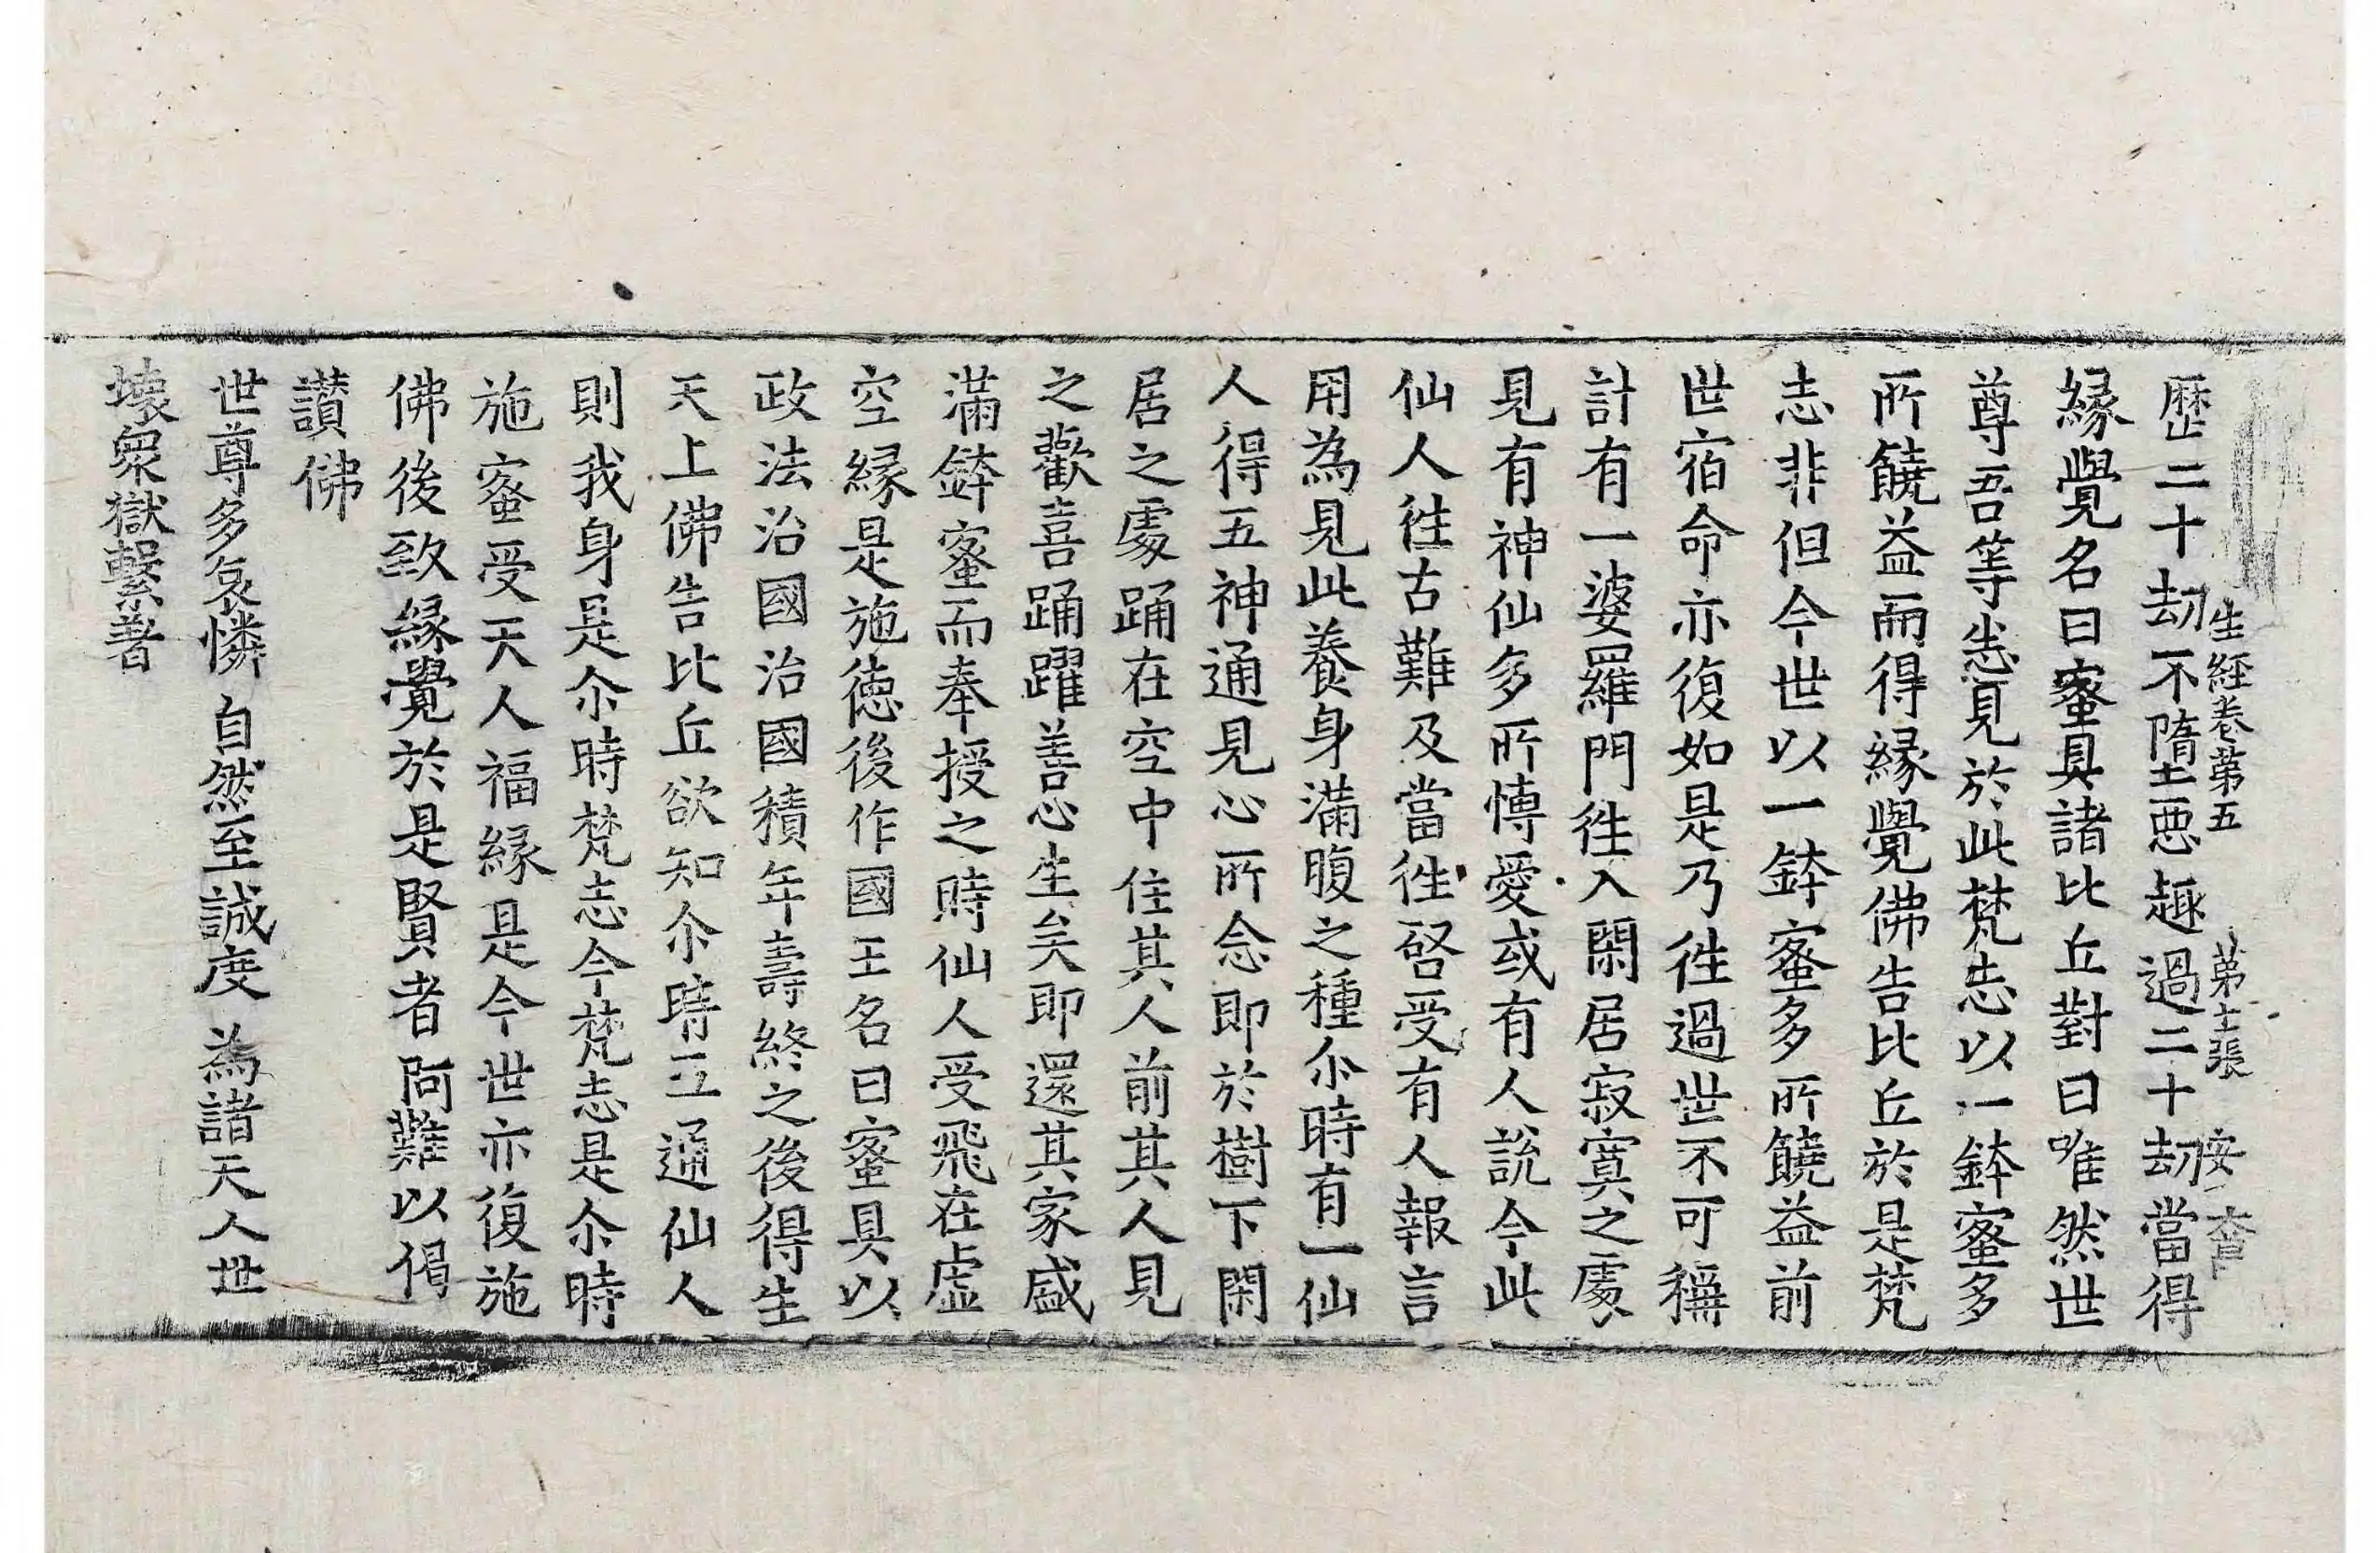 生經卷第五 第十二張 安
歷二十劫不墮惡趣過二十劫當得
緣覺名曰蜜具諸比丘對曰唯然世
尊吾等悉見於此梵志以一鉢蜜多
所饒益而得緣覺佛告比丘於是梵
志非但今世以一鉢蜜多所饒益前
世宿命亦復如是乃徃過世不可稱
計有一婆羅門徃入閑居寂寞之處
見有神仙多所慱愛或有人說今此
仙人徃古難及當徃啓受有人報言
用為見此養身滿腹之種尒時有一仙
人得五神通見心所念即於樹下閑
居之處踊在空中住其人前其人見
之歡喜踊躍善心生矣即還其家盛
滿鉢蜜而奉授之時仙人受飛在虛
空緣是施德後作國王名曰蜜具以
政法治國治國積年壽終之後得生
天上佛告比丘欲知尒時五通仙人
則我身是尒時梵志今梵志是尒時
施蜜受天人福緣是今世亦復施
佛後致緣覺於是賢者阿難以偈
讃佛
世尊多哀憐 自然至誠度 為諸天人世
壞衆獄繫著